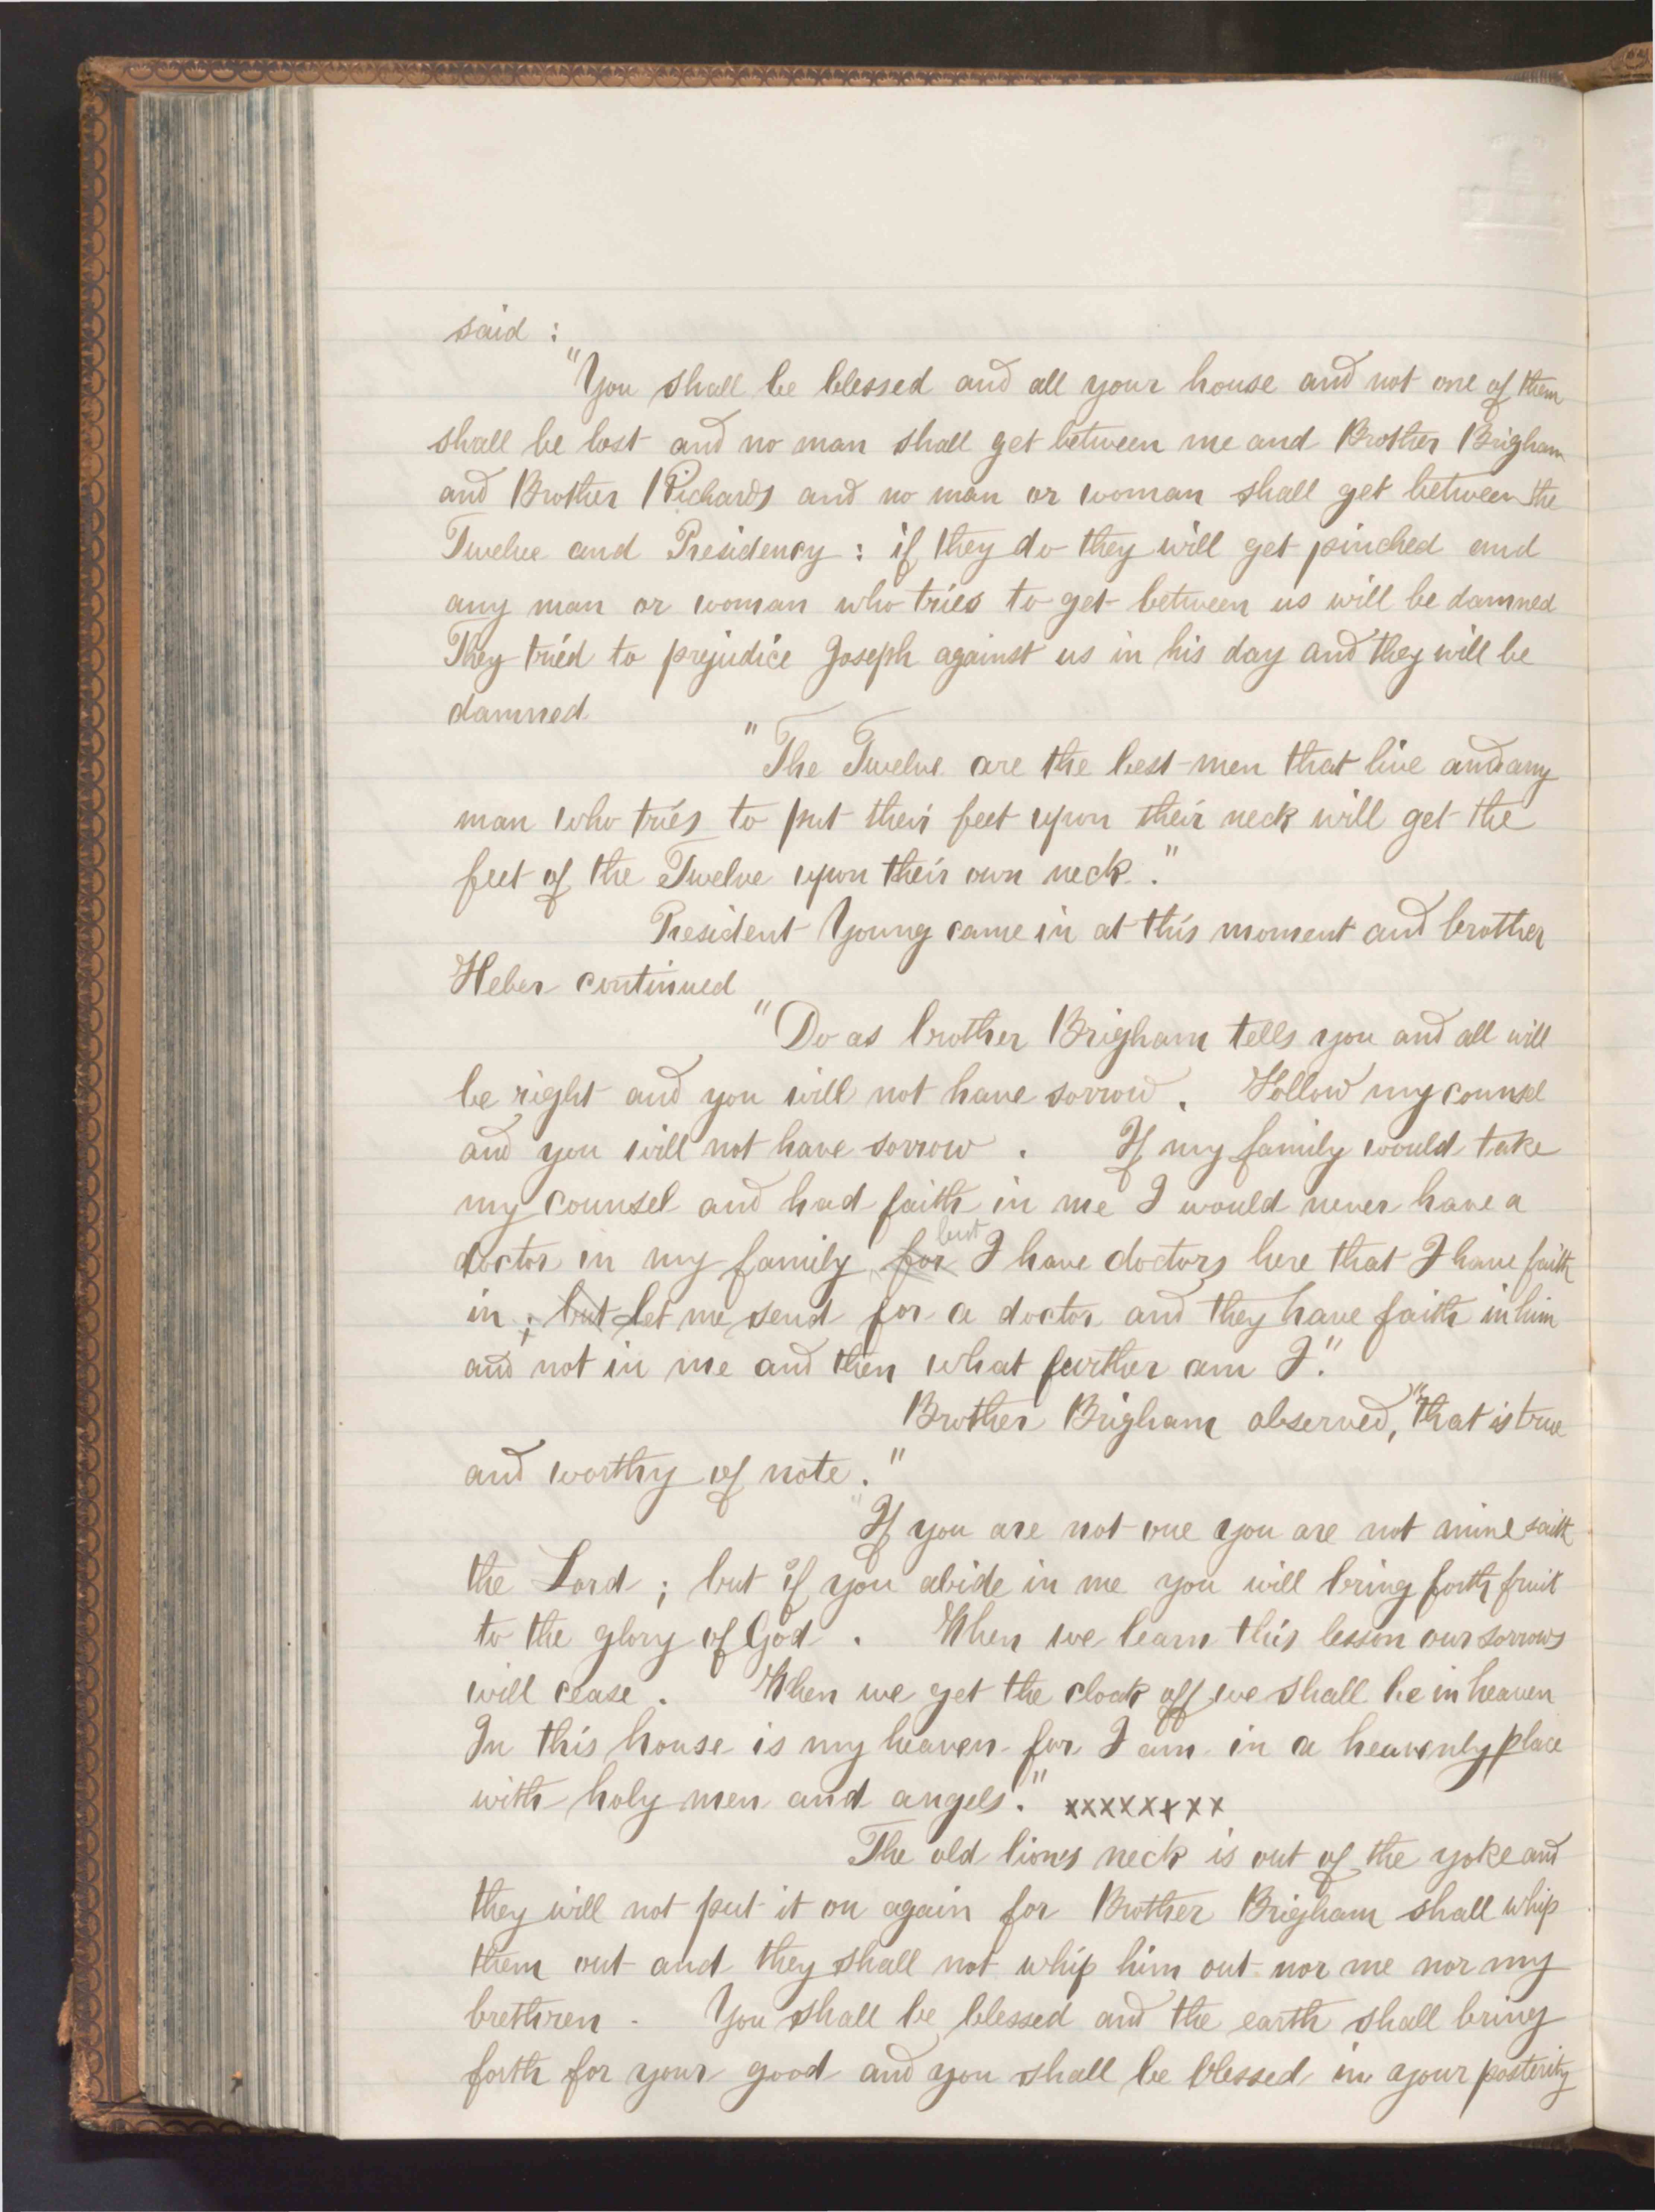 said :
"You shall be blessed and all your house and not one of them
shall be lost and no man shall get between me and Brother Brigham
and Brother Richards and no man or woman shall get between the
Twelve and Presidency : if they do they will get pinched and
any man or woman who tries to get between us will be damned
They tried to prejudice Joseph against us in his day and they will be
damned
"The Twelve are the best men that live and any
man who tries to put their feet upon their neck will get the
feet of the Twelve upon their own neck."
President Young came in at this moment and brother
Heber continued
"Do as brother Brigham tells you and all will
be right and you will not have sorrow . Follow my counsel
and you will not have sorrow . If my family would take
my counsel and had faith in me I would never have a
but
doctor in my family for I have doctors here that I have faith
in ; but let me send for a doctor and they have faith in him
and not in me and then what further am I."
Brother Brigham observed, "that is true
and worthy of note."
"If you are not one you are not mine saith
the Lord ; but if you abide in me you will bring forth fruit
to the glory of God . When we learn this lesson our sorrows
will cease . When we get the cloak off we shall be in heaven
In this house is my heaven for I am in a heavenly place
with holy men and angels." xxxxxxxx
The old lion's neck is out of the yoke and
they will not put it on again for Brother Brigham shall whip
them out and they shall not whip him out nor me nor my
brethren - You shall be blessed and the earth shall bring
forth for your good and you shall be blessed in your posterity